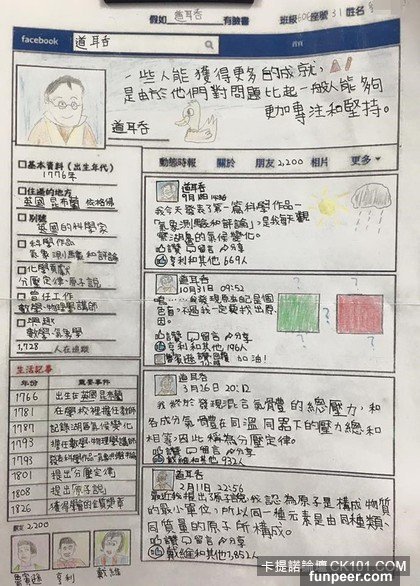 假如 道耳吞 有臉書 班級606座號31姓名
facebook 道耳吞
一些人能獲得更多的成就,
是由於他們對問題比起一般人能夠
更加專注和堅持。
道耳吞
動態時報 關於 朋友 2,200 相片 更多
基本資料(出生年代)
1776年
住過的地方
英國 昆布蘭
別號
英國的科學家
科學作品
氣象測驗和評論
化學貢獻
分壓定律.原子說
曾任工作
數學.物理學講師
興趣
數學.氣象學
1,728 人在追蹤
道耳吞
我今天發表了第一篇科學作品-
「氣象測驗和評論」,是我每天觀
察湖邊的氣候變化。
讚 留言 分享
亨利和其他669人
道耳吞
10月31日 09:52
讚 留言 分享
加油!
3月16日 20:12
我終於發現混合氣體的總壓力,和
各成分氣體在同溫同容下的壓力總和
相等,因此稱為分壓定律。
讚 留言 分享
戴維和其他932人
道耳吞
2月11日 22:56
最近我提出原子說,我認為原子是構成物質
的最小單位,所以同一種元素是由同種類、
同質量的原子所構成。
讚 留言 分享
戴維和其他1,852人
生活記事
年份 重要事件
1766 出生在英國昆布蘭
1781 在學校裡擔任教師
1787 記錄湖區氣候變化
1793 擔任數學.物理學講師
1793 發表科學作品
1801 提出「分壓定律」
1808 提出「原子說」
1826 獲得
朋友 2,200
亨利 戴維
卡提諾論壇CK101.COM
funpeer.com